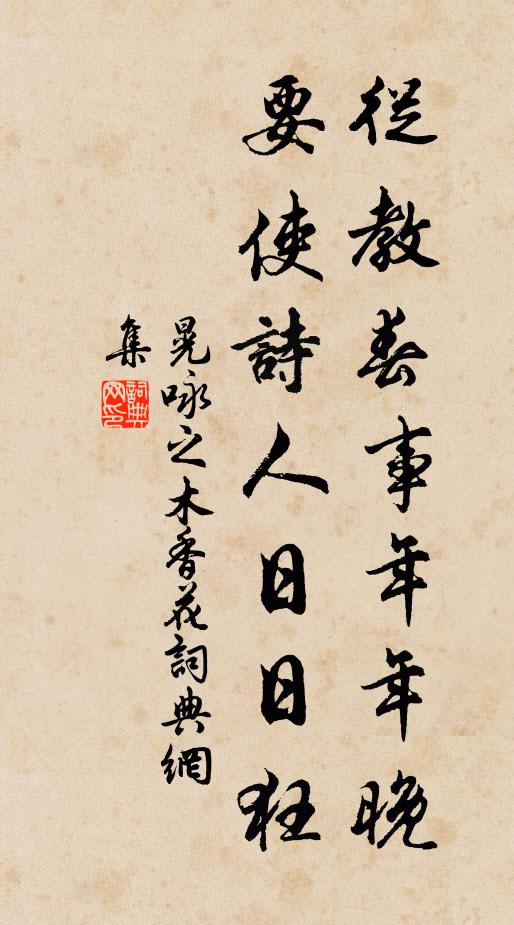 從教春事年年晚
要使詩人日日狂
晃咏之木香花詞典網
集
詞典網印